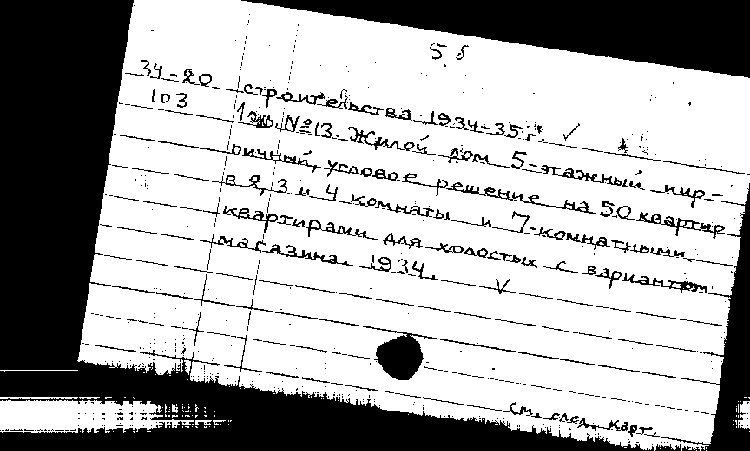 5
34-20 строительства 1934-35 г.
103 №13. Жилой дом 5-этажный кир-
пичный, угловое решение на 50 квартир
в 2, 3 и 4 комнаты и 7-комнатными
квартирами для холостых с вариантом
магазина. 1934.
См. след. карт.